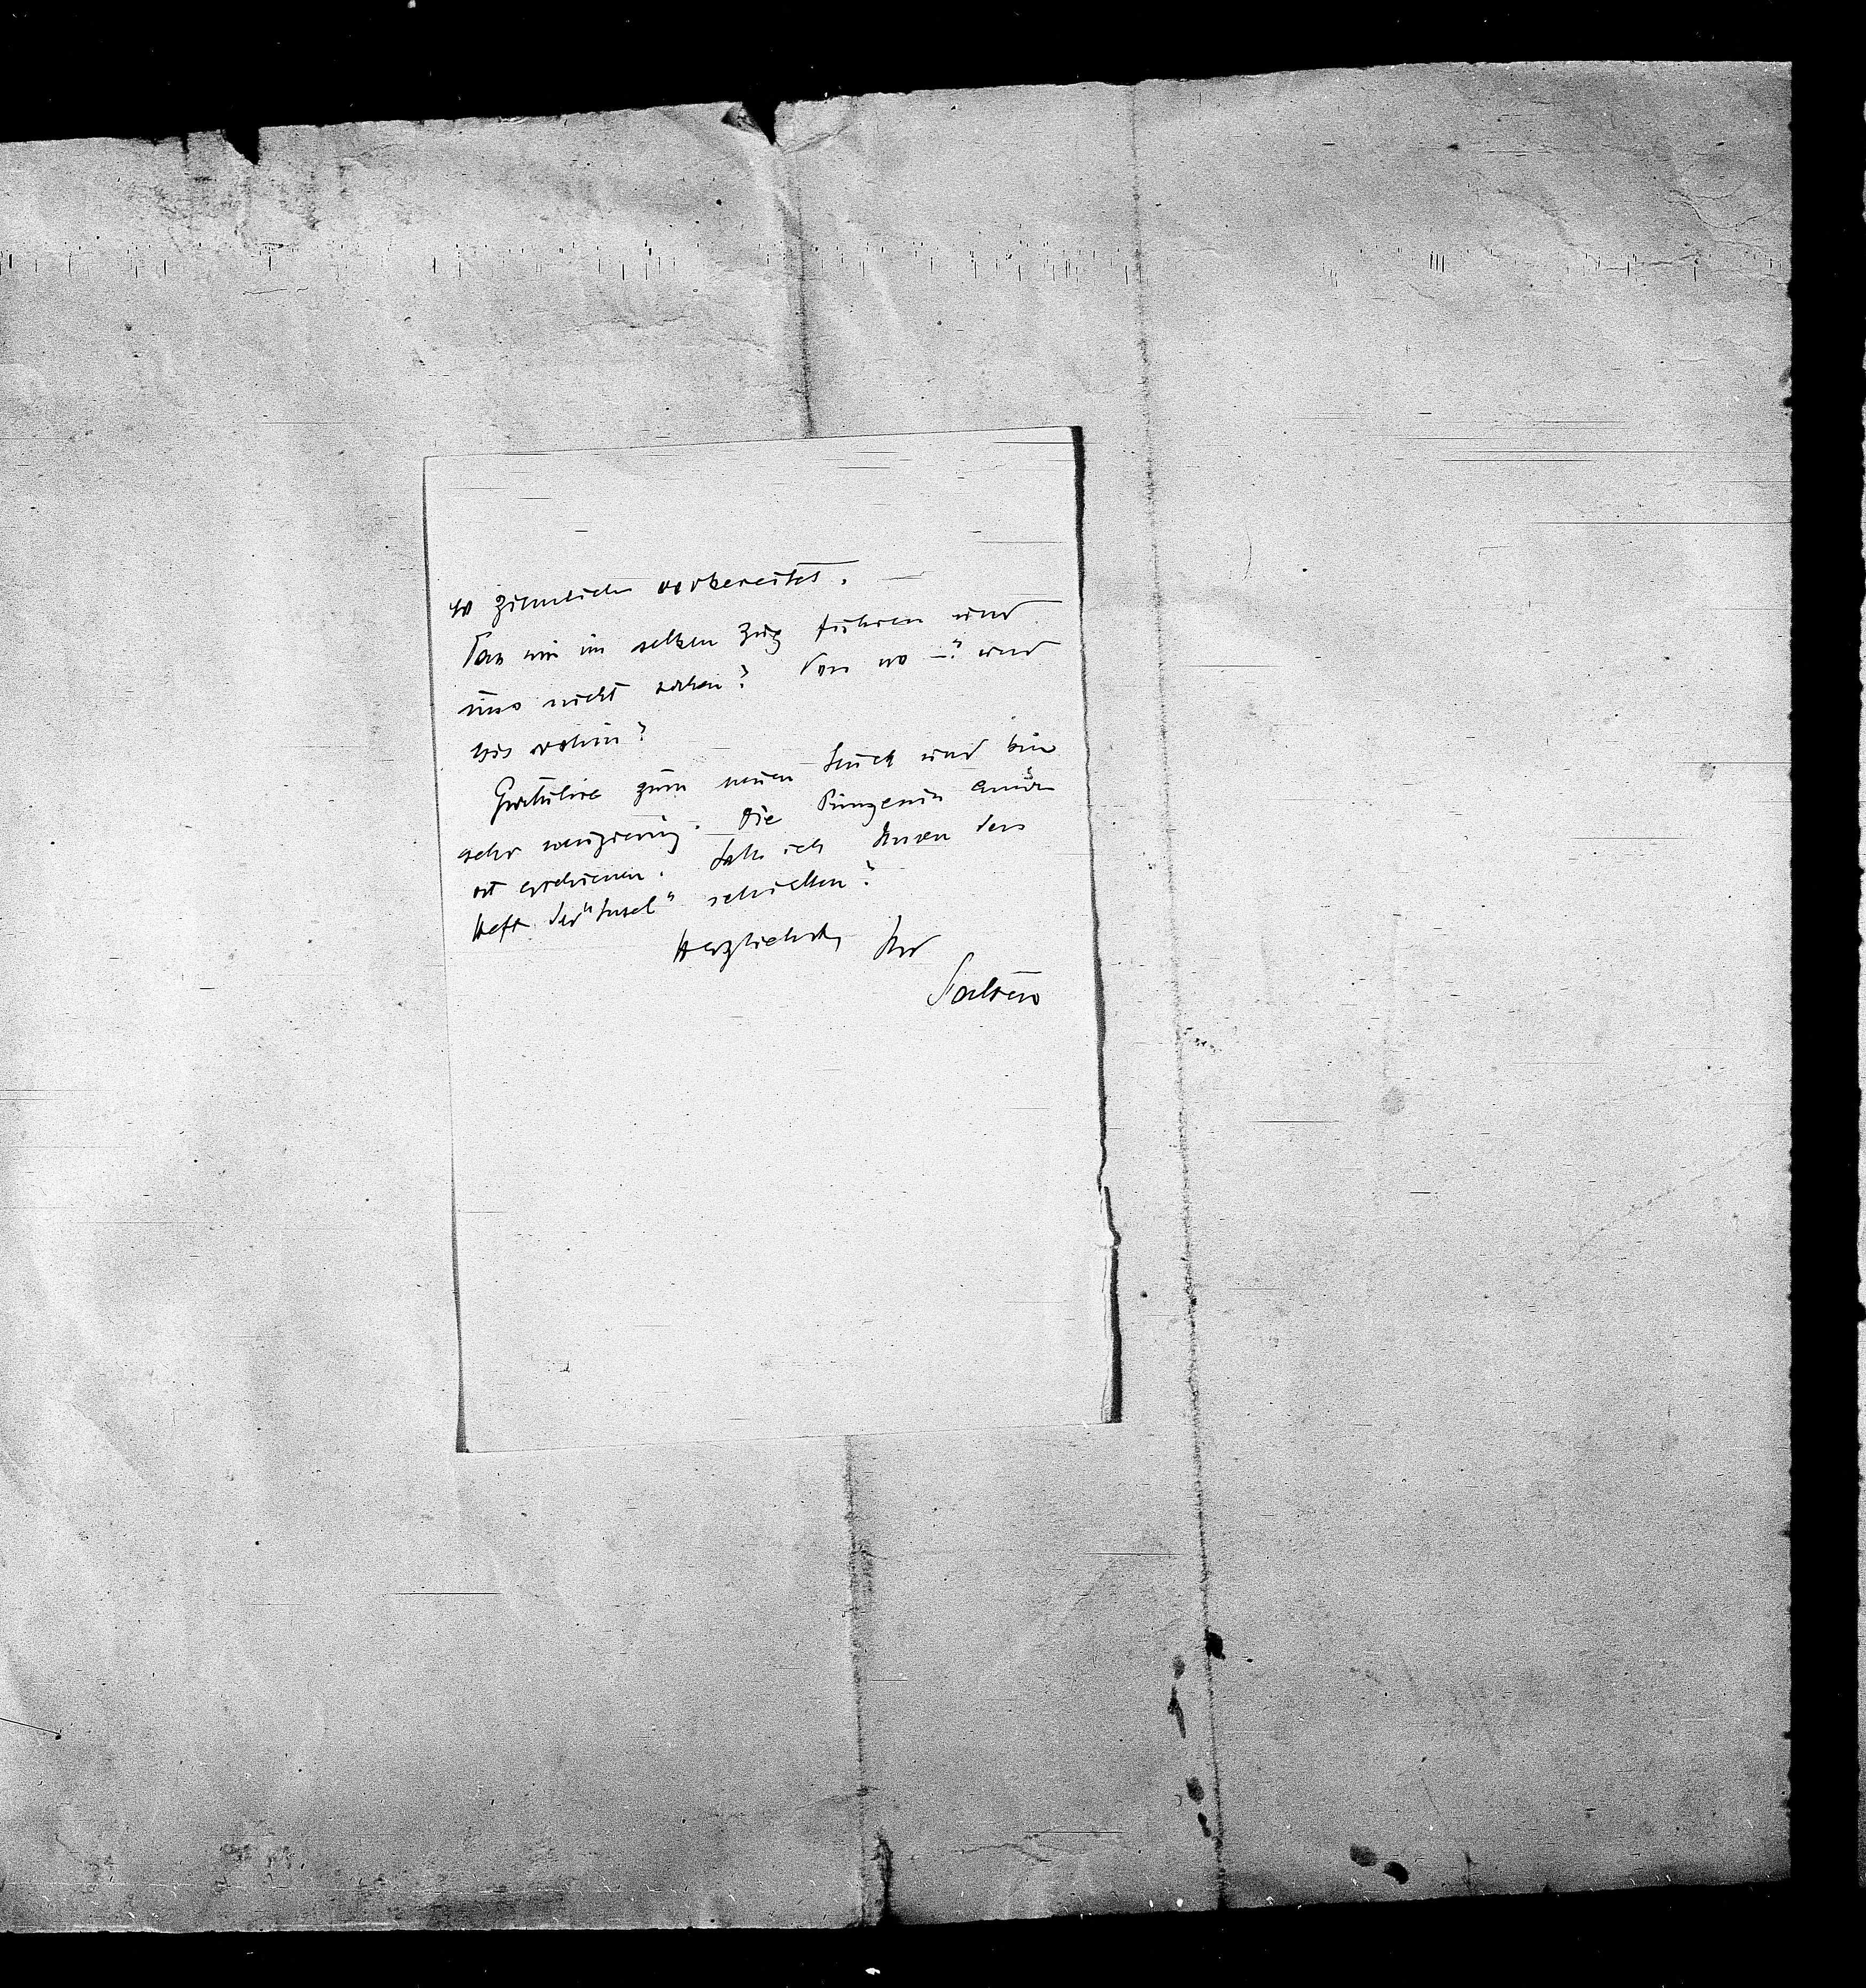 so ziemlich vorbereitet.
Das wir im selben Zug fuhren und
uns nicht sahen? Von wo –? und
bis wohin?
Gratulire zum neuen Stück und bin
sehr neugierig. Die Pinzessin Anna
ist erschienen. Soll ich Ihnen das
Heft der "Insel" schicken?
Herzlichst, Ihr
Salten